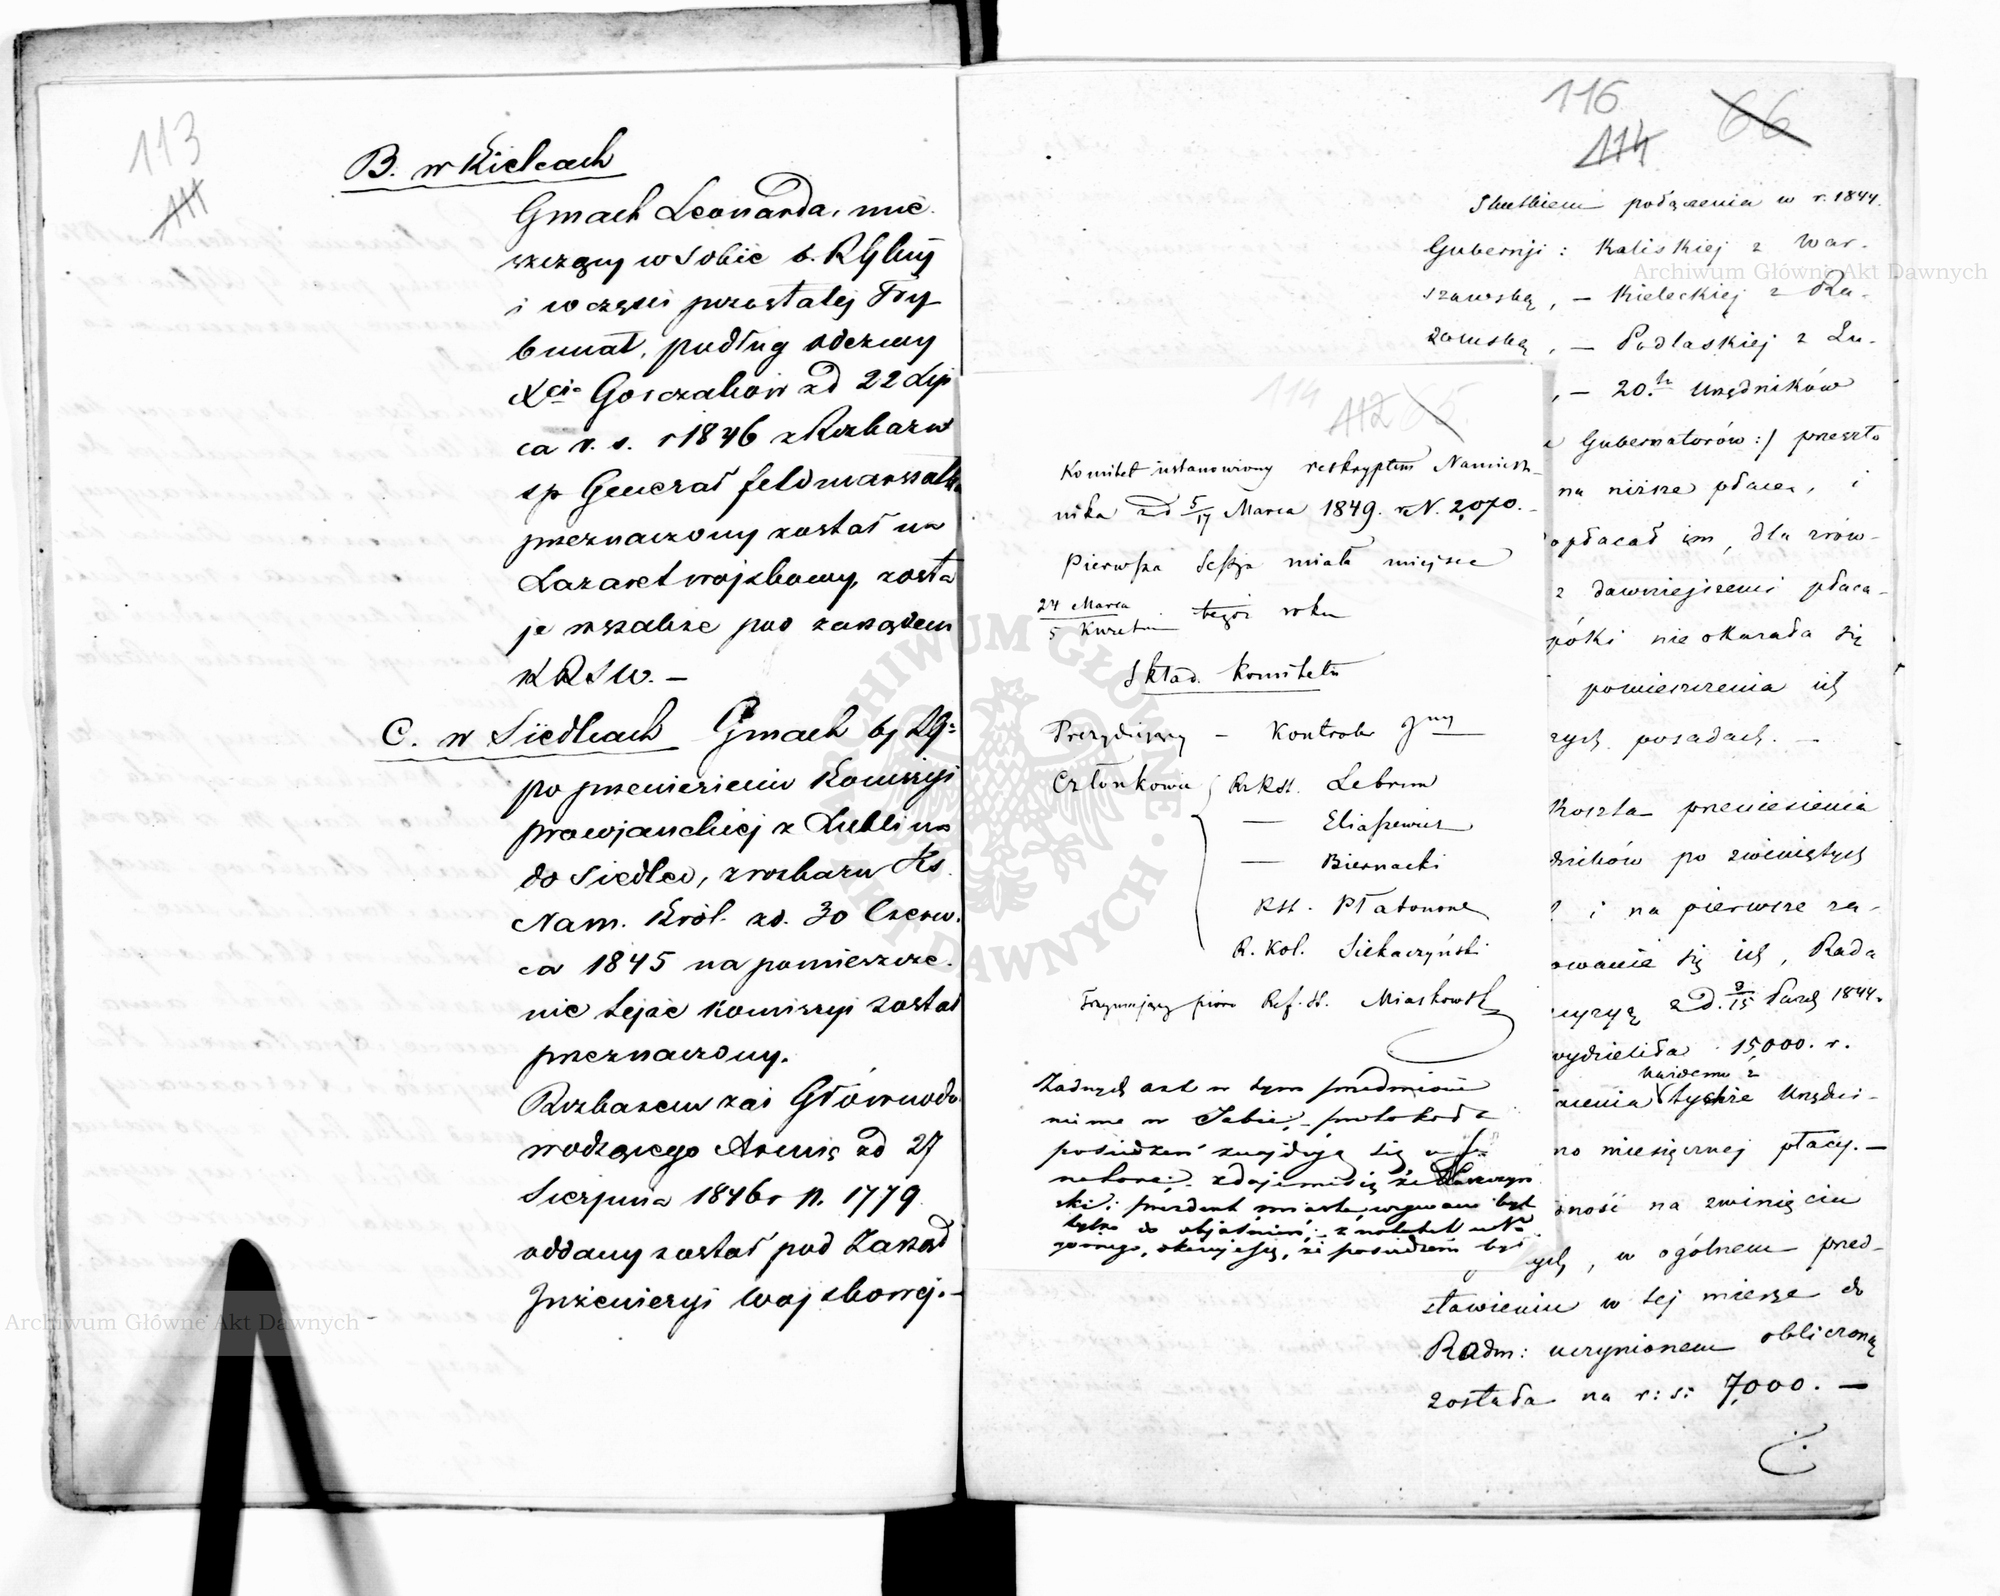 113
111
B. w Kielcach
Gmach Leonarda, mie-
szczący w Sobie b. RGbny
i w części pozostałej Try
bunał, podług odezwy
Xcia Gorczakow zd 22 Lip
ca n. s. r 1846 z Rozkazu
sp Generał feldmarszałka
przeznaczony został na
Lazaret wojskowy, zosta
je wszakże pod zarządem
KRSW. —
C. w Siedlcach Gmach by RG:
po przeniesieniu Komissyi
prowjanckiej z Lublina
do Siedlec, z rozkazu Ks
Nam. Król. zd. 30 Czerw.
ca 1845 na pomieszcze-
nie tejże Komissyi został
przeznaczony.
Rozkazem zaś Głównodo
wodzącego Armią zd 27
Sierpnia 1846 r N. 1779
oddany został pod Zarząd
Inżenieryi Wojskowej. —
116
114
66
Skutkiem połączenia w r. 1844.
Gubernji: Kaliskiej z War-
szawską, — Kieleckiej z Ra-
domską, — Podlaskiej z Lu-
, — 20tu Urzędników
Gubernatorów:/ przeszło
na niższe płace, i
opłacał im, dla zrów-
z dawniejszemi płaca-
póki nie okazała się
pomieszczenia ich
zych posadach. —
Koszta przeniesienia
dników po zwiniętych
i na pierwsze za-
owanie się ich, Rada
zd. 3/15 1844.
wydzieliła 15,000. r.
każdemu z
tychże Urzędni-
no miesięcznej płacy. —
ność na zwinięciu
ych, w ogólnem przed-
stawieniu w tej mierze do
Radm: uczynionem obliczoną
została na r: s: 7,000. —
114
112
65
Komitet ustanowiony reskryptem Namiest-
nika zd 5/17 Marca 1849. N. 2070.
Pierwsza Sessya miała miejsce
24 Marca
5 Kwietnia tegoż roku
Skład Komitetu
Prezydujący — Kontroler Jny
Członkowie R. R. St. Lebrun
— Eliaszewicz
— Biernacki
R St. Płatonow
R. Kol. Siekaczyński
Trzymający pióro Ref. St. Miaskowski
Żadnych akt w tym przedmiocie
nie ma w Sobie; protokoła
posiedzeń znajdują się
zdaje mi się że
ski i prezydent miasta wezwani był
tylko do objaśnień; z notatek
gornego, okazuje się, że posiedzeń był